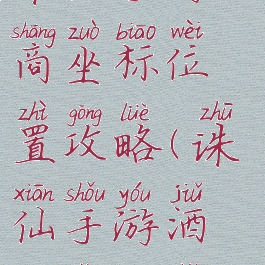 shāng zuò biāo wèi
商坐标位
zhì gōng lüè zhū
置攻略(诛
xiān shǒu yóu jiǔ
仙手游酒